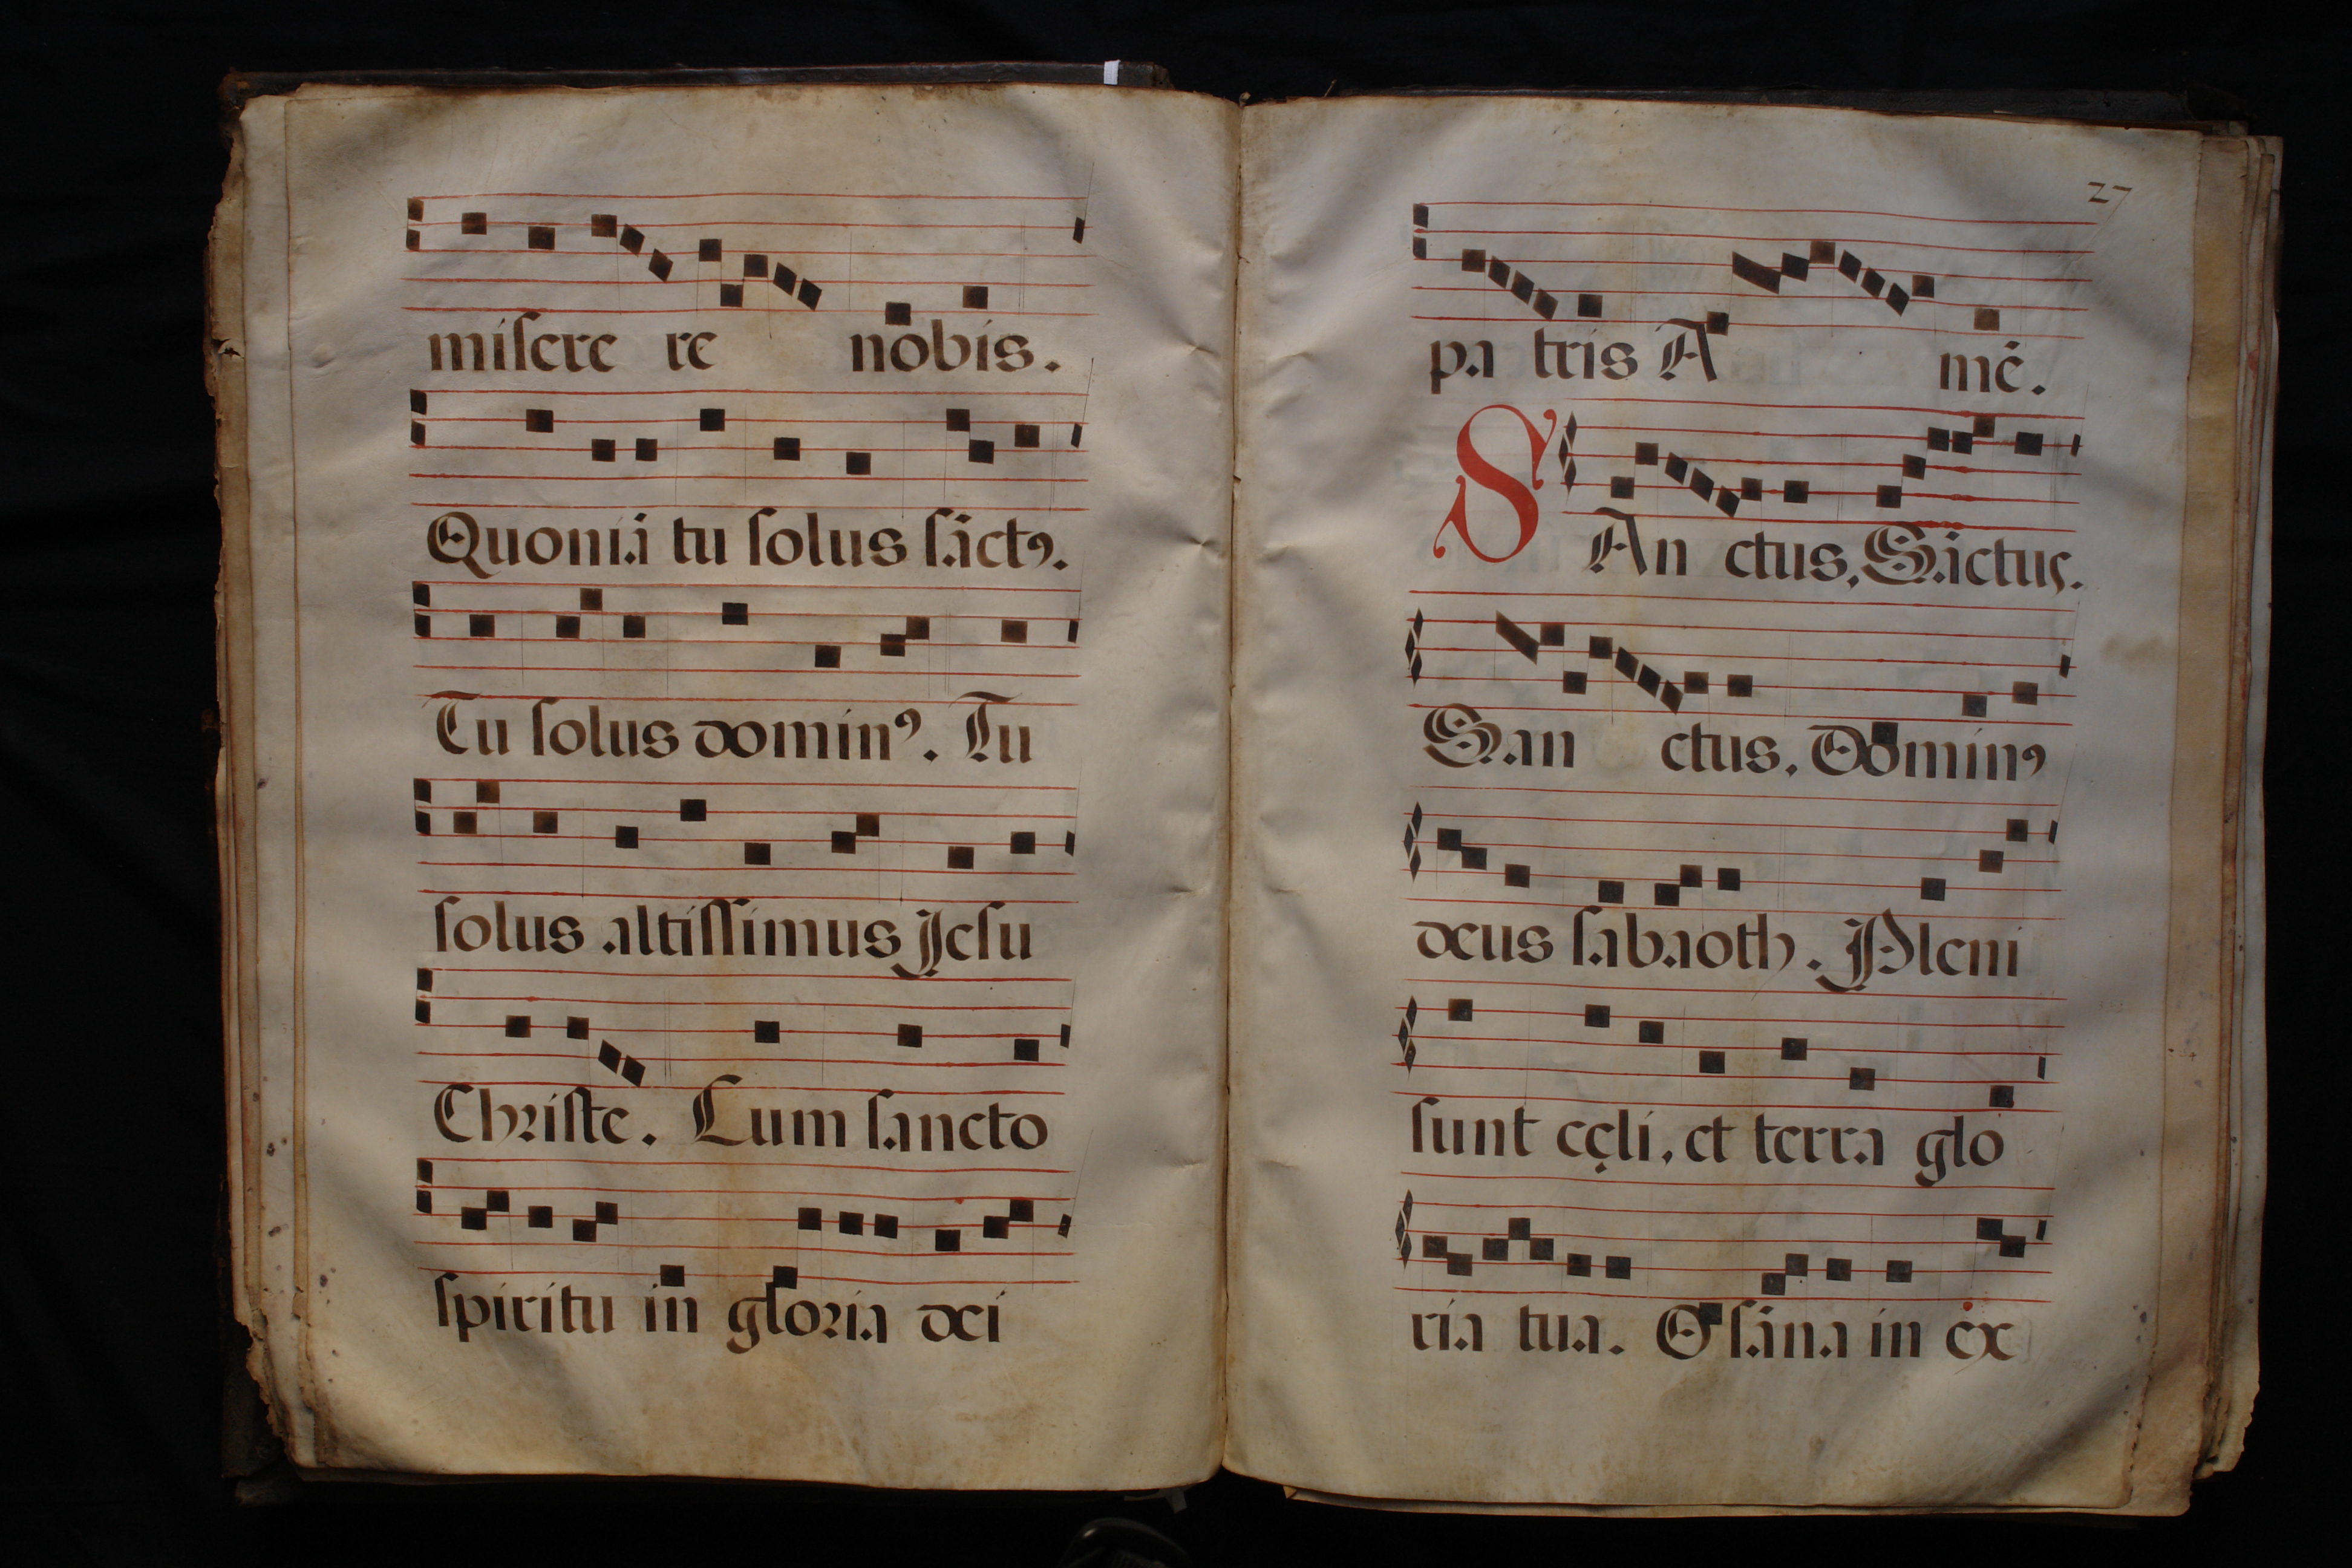 miſere re nobis.
Quoniā tu ſolus ſāctꝰ.
Tu ſolus dominꝰ. Tu
ſolus altiſſimus Jeſu
Chriſte. Cum ſancto
ſpiritu in gloria dei
27
pa tris A mē.
SAn ctus, Sāctus.
San ctus, Dominꝰ
deus ſabaoth. Pleni
ſunt cęli, et terra glo
ria tua. Oſāna in ex